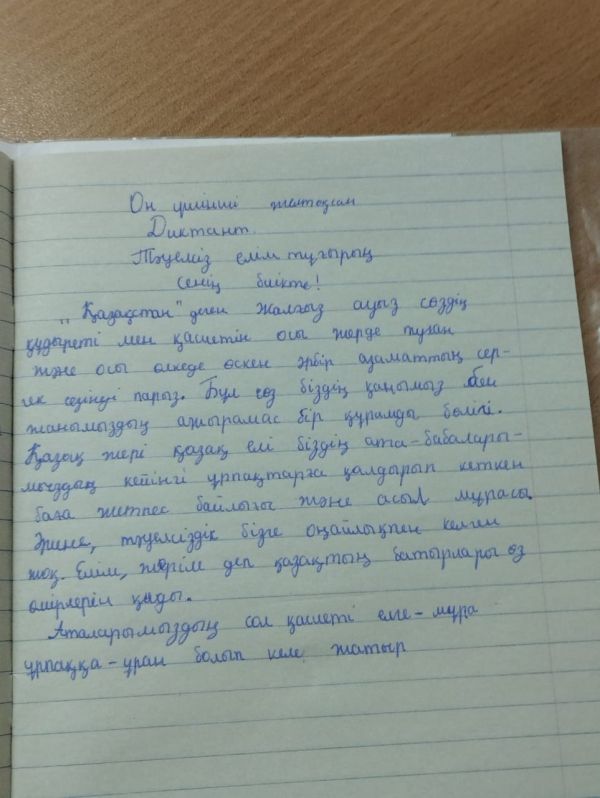 Он үшінші желтоқсан
Диктант.
Тәуелсіз елім тұғырың
сенің биікте!
„Қазақстан" деген жалғыз ауыз сөздің
құдыреті мен қасиетін осы жерде туған
және осы өлкеде өскен әрбір азаматтың сер-
гек сезінуі парыз. Бұл сөз біздің қанымыз бен
жанымыздың ажырамас бір құрамды бөлігі.
Қазақ жері қазақ елі біздің ата-бабалары-
мыздың кейінгі ұрпақтарға қалдырып кеткен
баға жетпес байлығы және асыл мұрасы.
Әрине, тәуелсіздік бізге оңайлықпен келген
жоқ. Елім, жерім деп қазақтың батырлары өз
өмірлерін қиды.
Аталарымыздың сол қасиеті елге-мұра
ұрпаққа-ұран болып келе жатыр